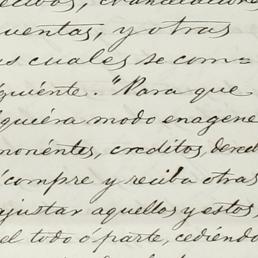 ecibos, cancelaciones
uentas, y otras
s cuales se com=
guiente. "Para que
quiéra modo enagene
monéntes, creditos, derech
compre y reciba otras
ajustar aquellos y estos,
el todo ó parte, cediendo